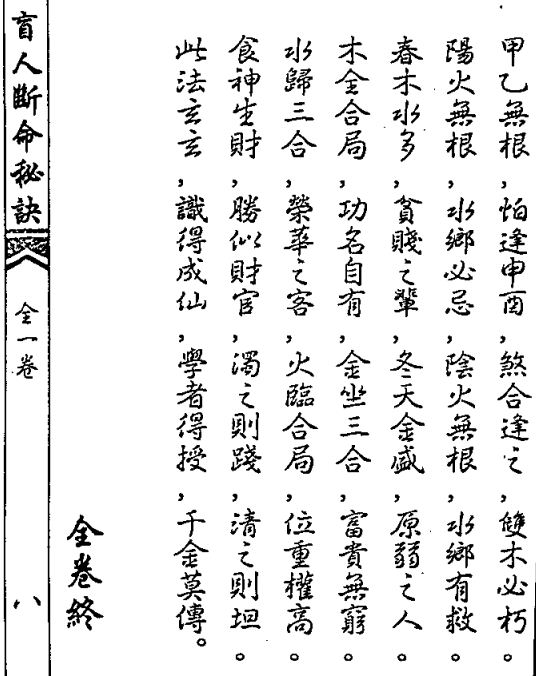 甲乙無根，怕逢申酉，煞合逢之，雙木必朽。
陽火無根，水鄉必忌，陰火無根，水鄉有救。
春木水多，貧賤之輩，冬天金盛，原弱之人。
木全合局，功名自有，金坐三合，富貴無窮。
水歸三合，榮華之客，火臨合局，位重權高。
食神生財，勝似財官，濁之則踐，清之則坦。
此法玄玄，識得成仙，學者得授，千金莫傳。
全卷終
盲人斷命秘訣
全一卷
八